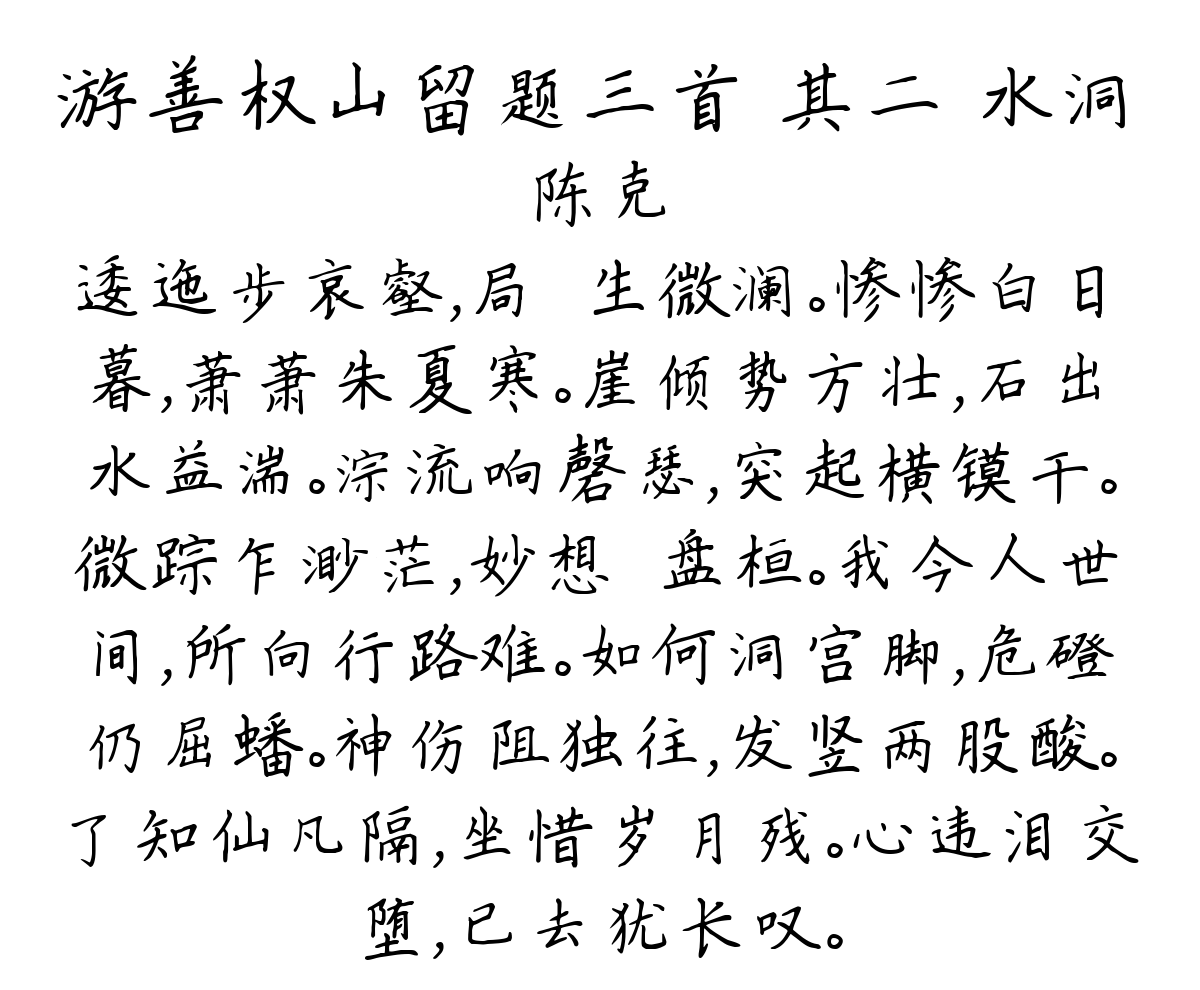 游善权山留题三首 其二 水洞
陈克
逶迤步哀壑,局 生微澜。惨惨白日
暮,萧萧朱夏寒。崖倾势方壮,石出
水益湍。淙流响磬瑟,突起横镆干。
微踪乍渺茫,妙想 盘桓。我今人世
间,所向行路难。如何洞宫脚,危磴
仍屈蟠。神伤阻独往,发竖两股酸。
了知仙凡隔,坐惜岁月残。心违泪交
堕,已去犹长叹。